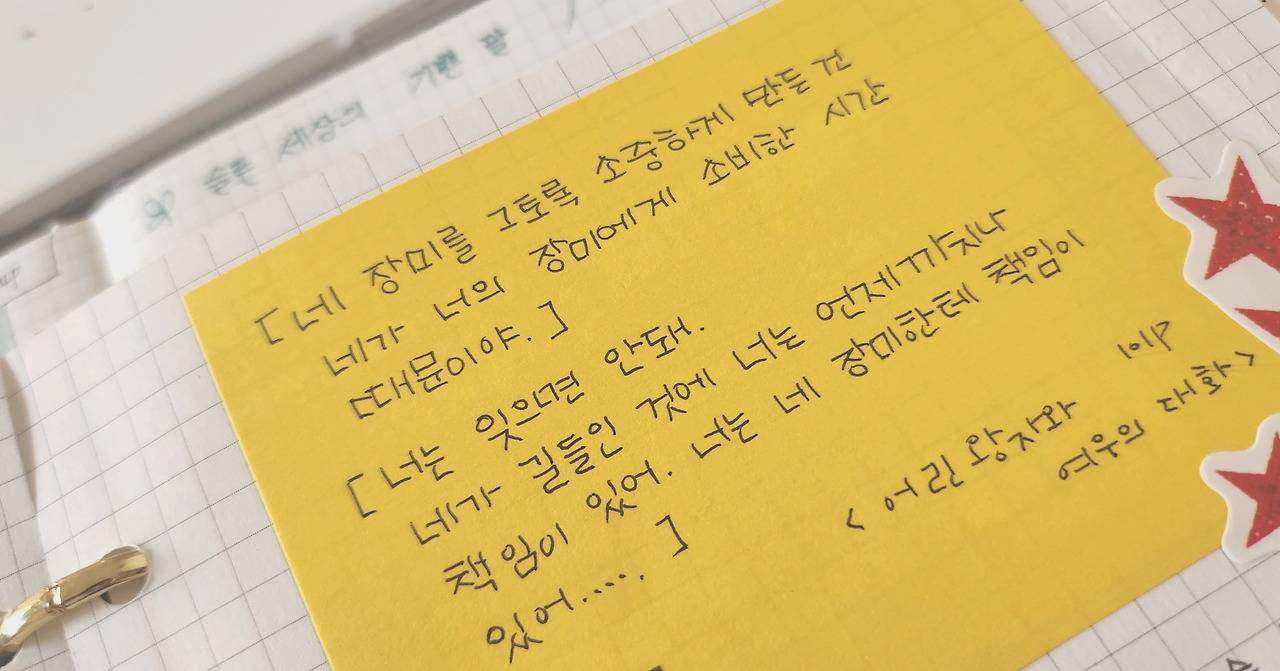 슬픈 세상의 기쁜
[네 장미를 그토록 소중하게 만든 건
네가 너의 장미에게 소비한 시간
때문이야.]
[너는 잊으면 안돼.
네가 길들인 것에 너는 언제까지나
책임이 있어. 너는 네 장미한테 책임이
있어.....]
<어린왕자와
여우의 대화>